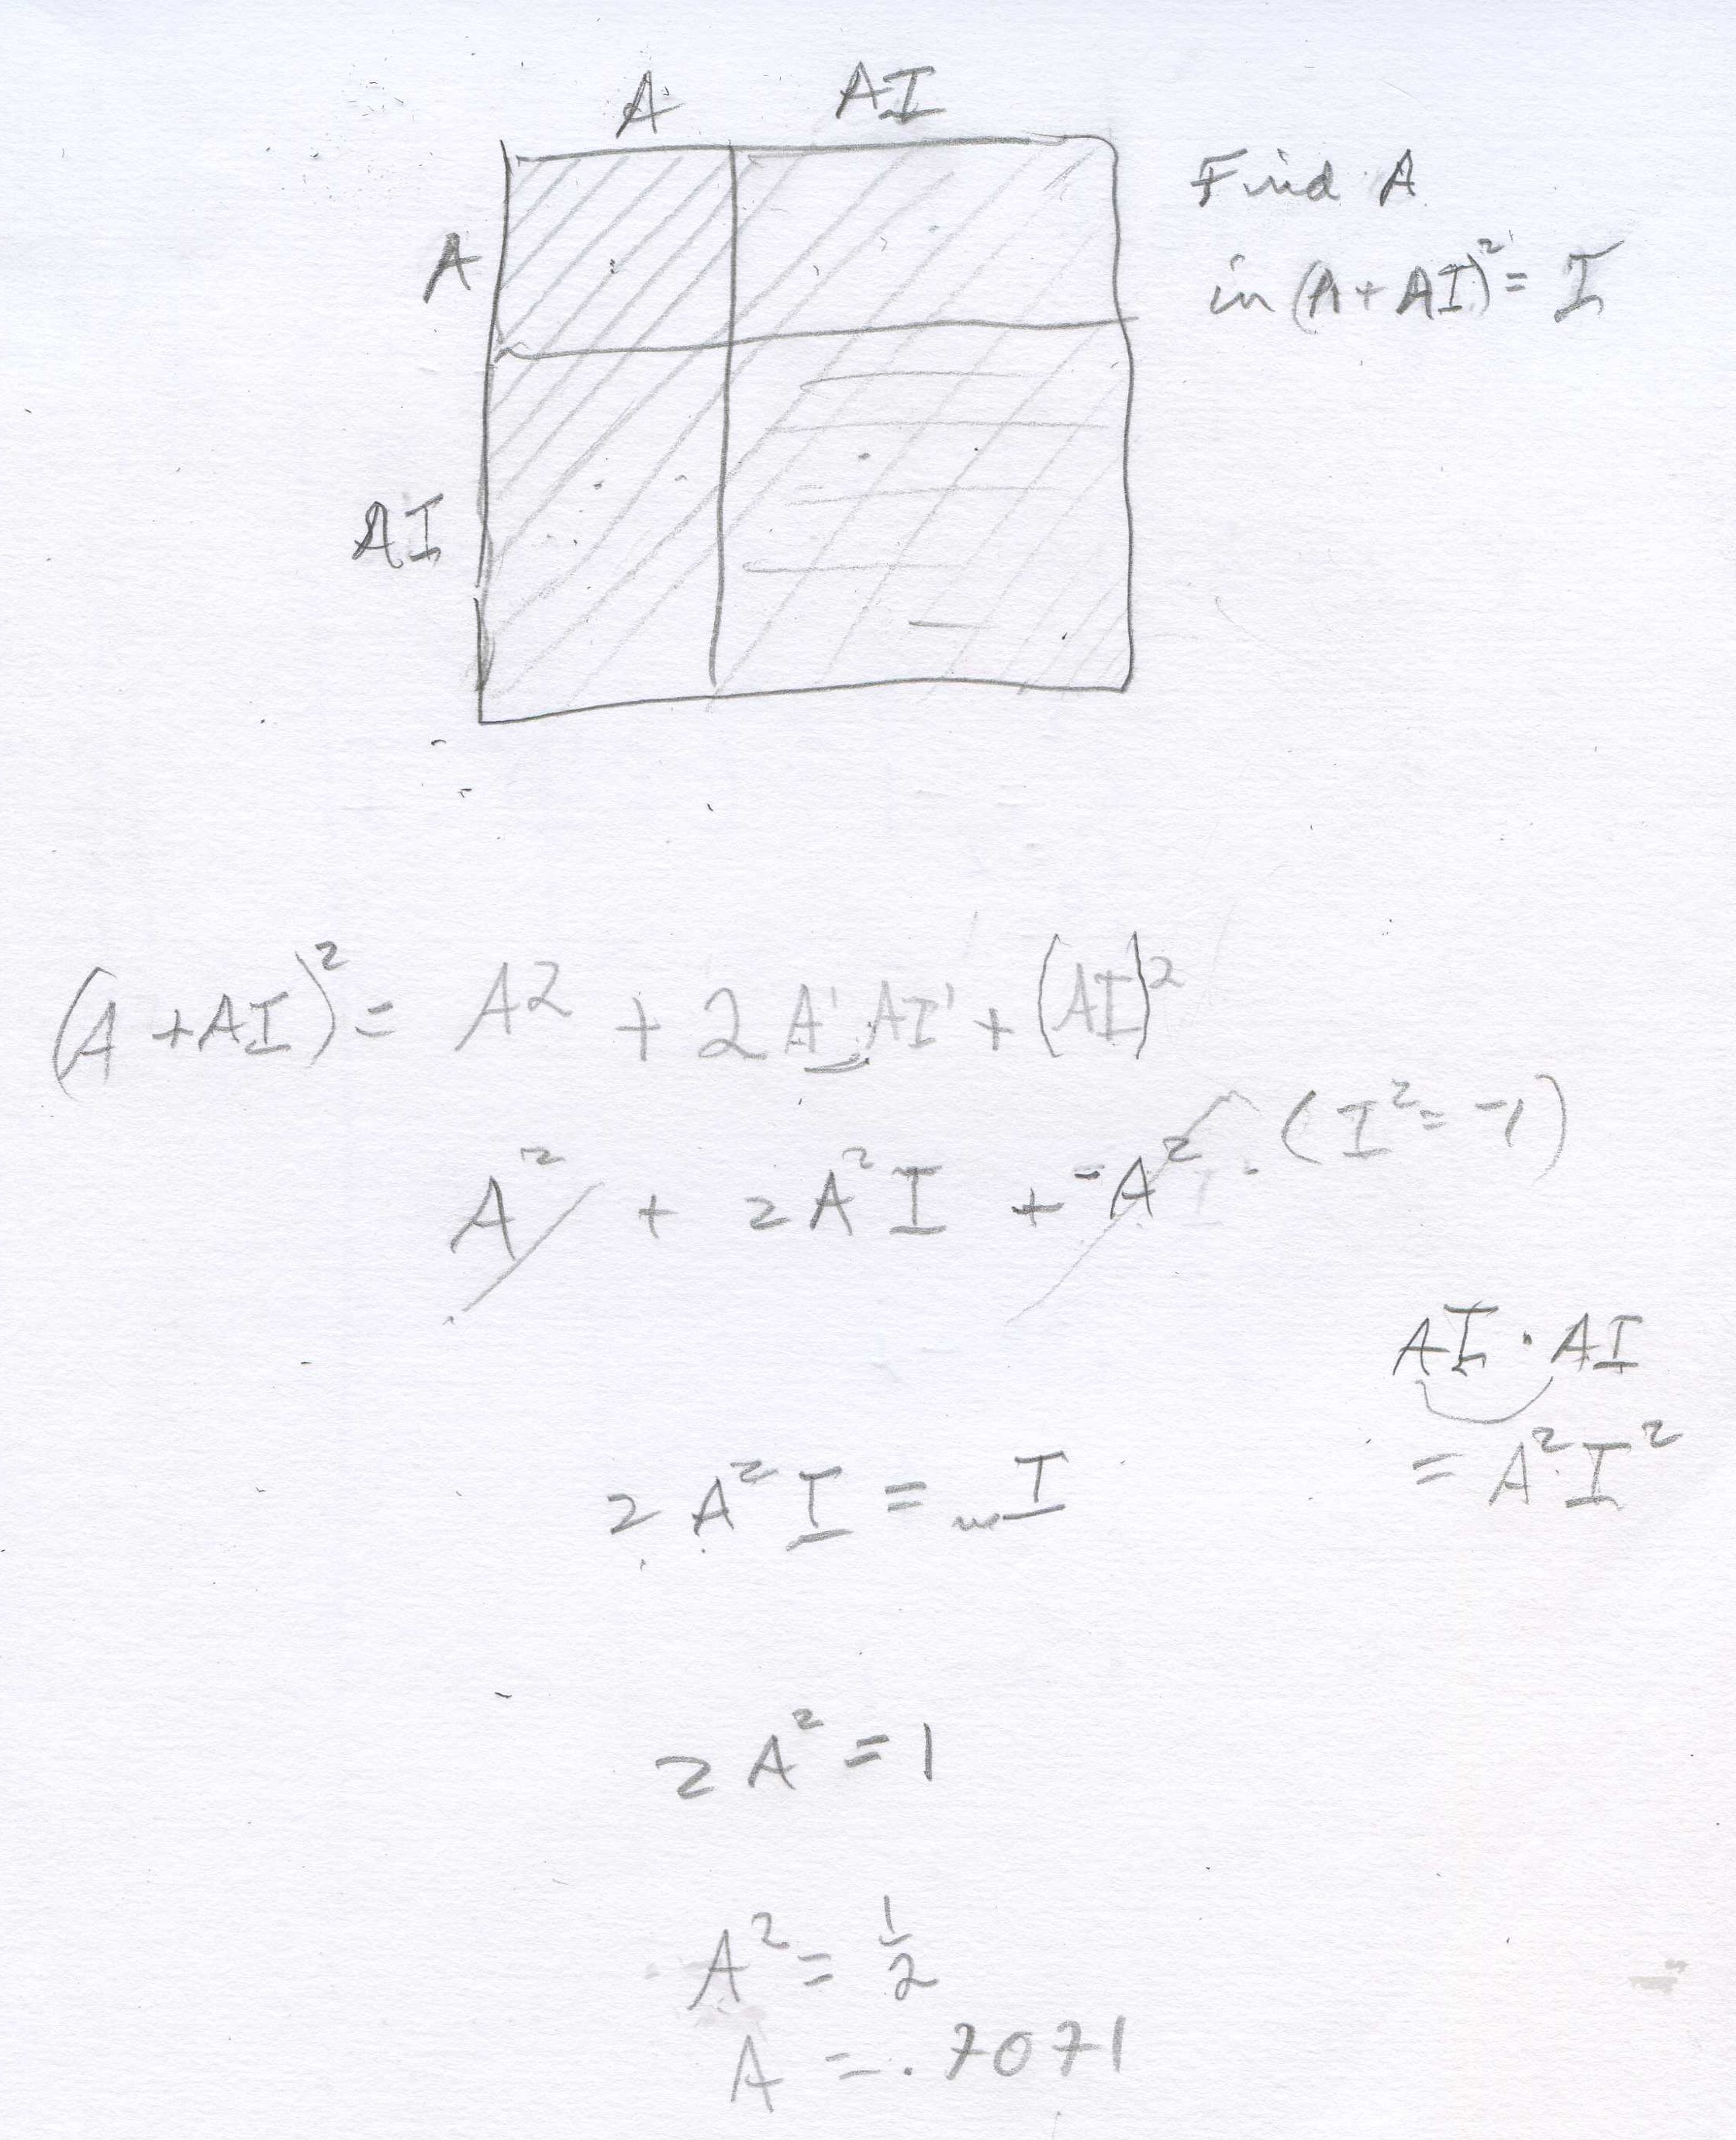 A AI
A
AI
Find A
in (A + AI)² = I
(A + AI)² = A2 + 2 A · AI + (AI)²
A² + 2A²I + -A² (I² = -1)
AI · AI
= A²I²
2A²I = I
2A² = 1
A² = 1/2
A = .7071